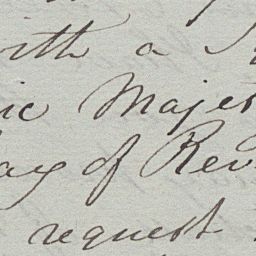 ith a
ic Majes
ay of Rev
request